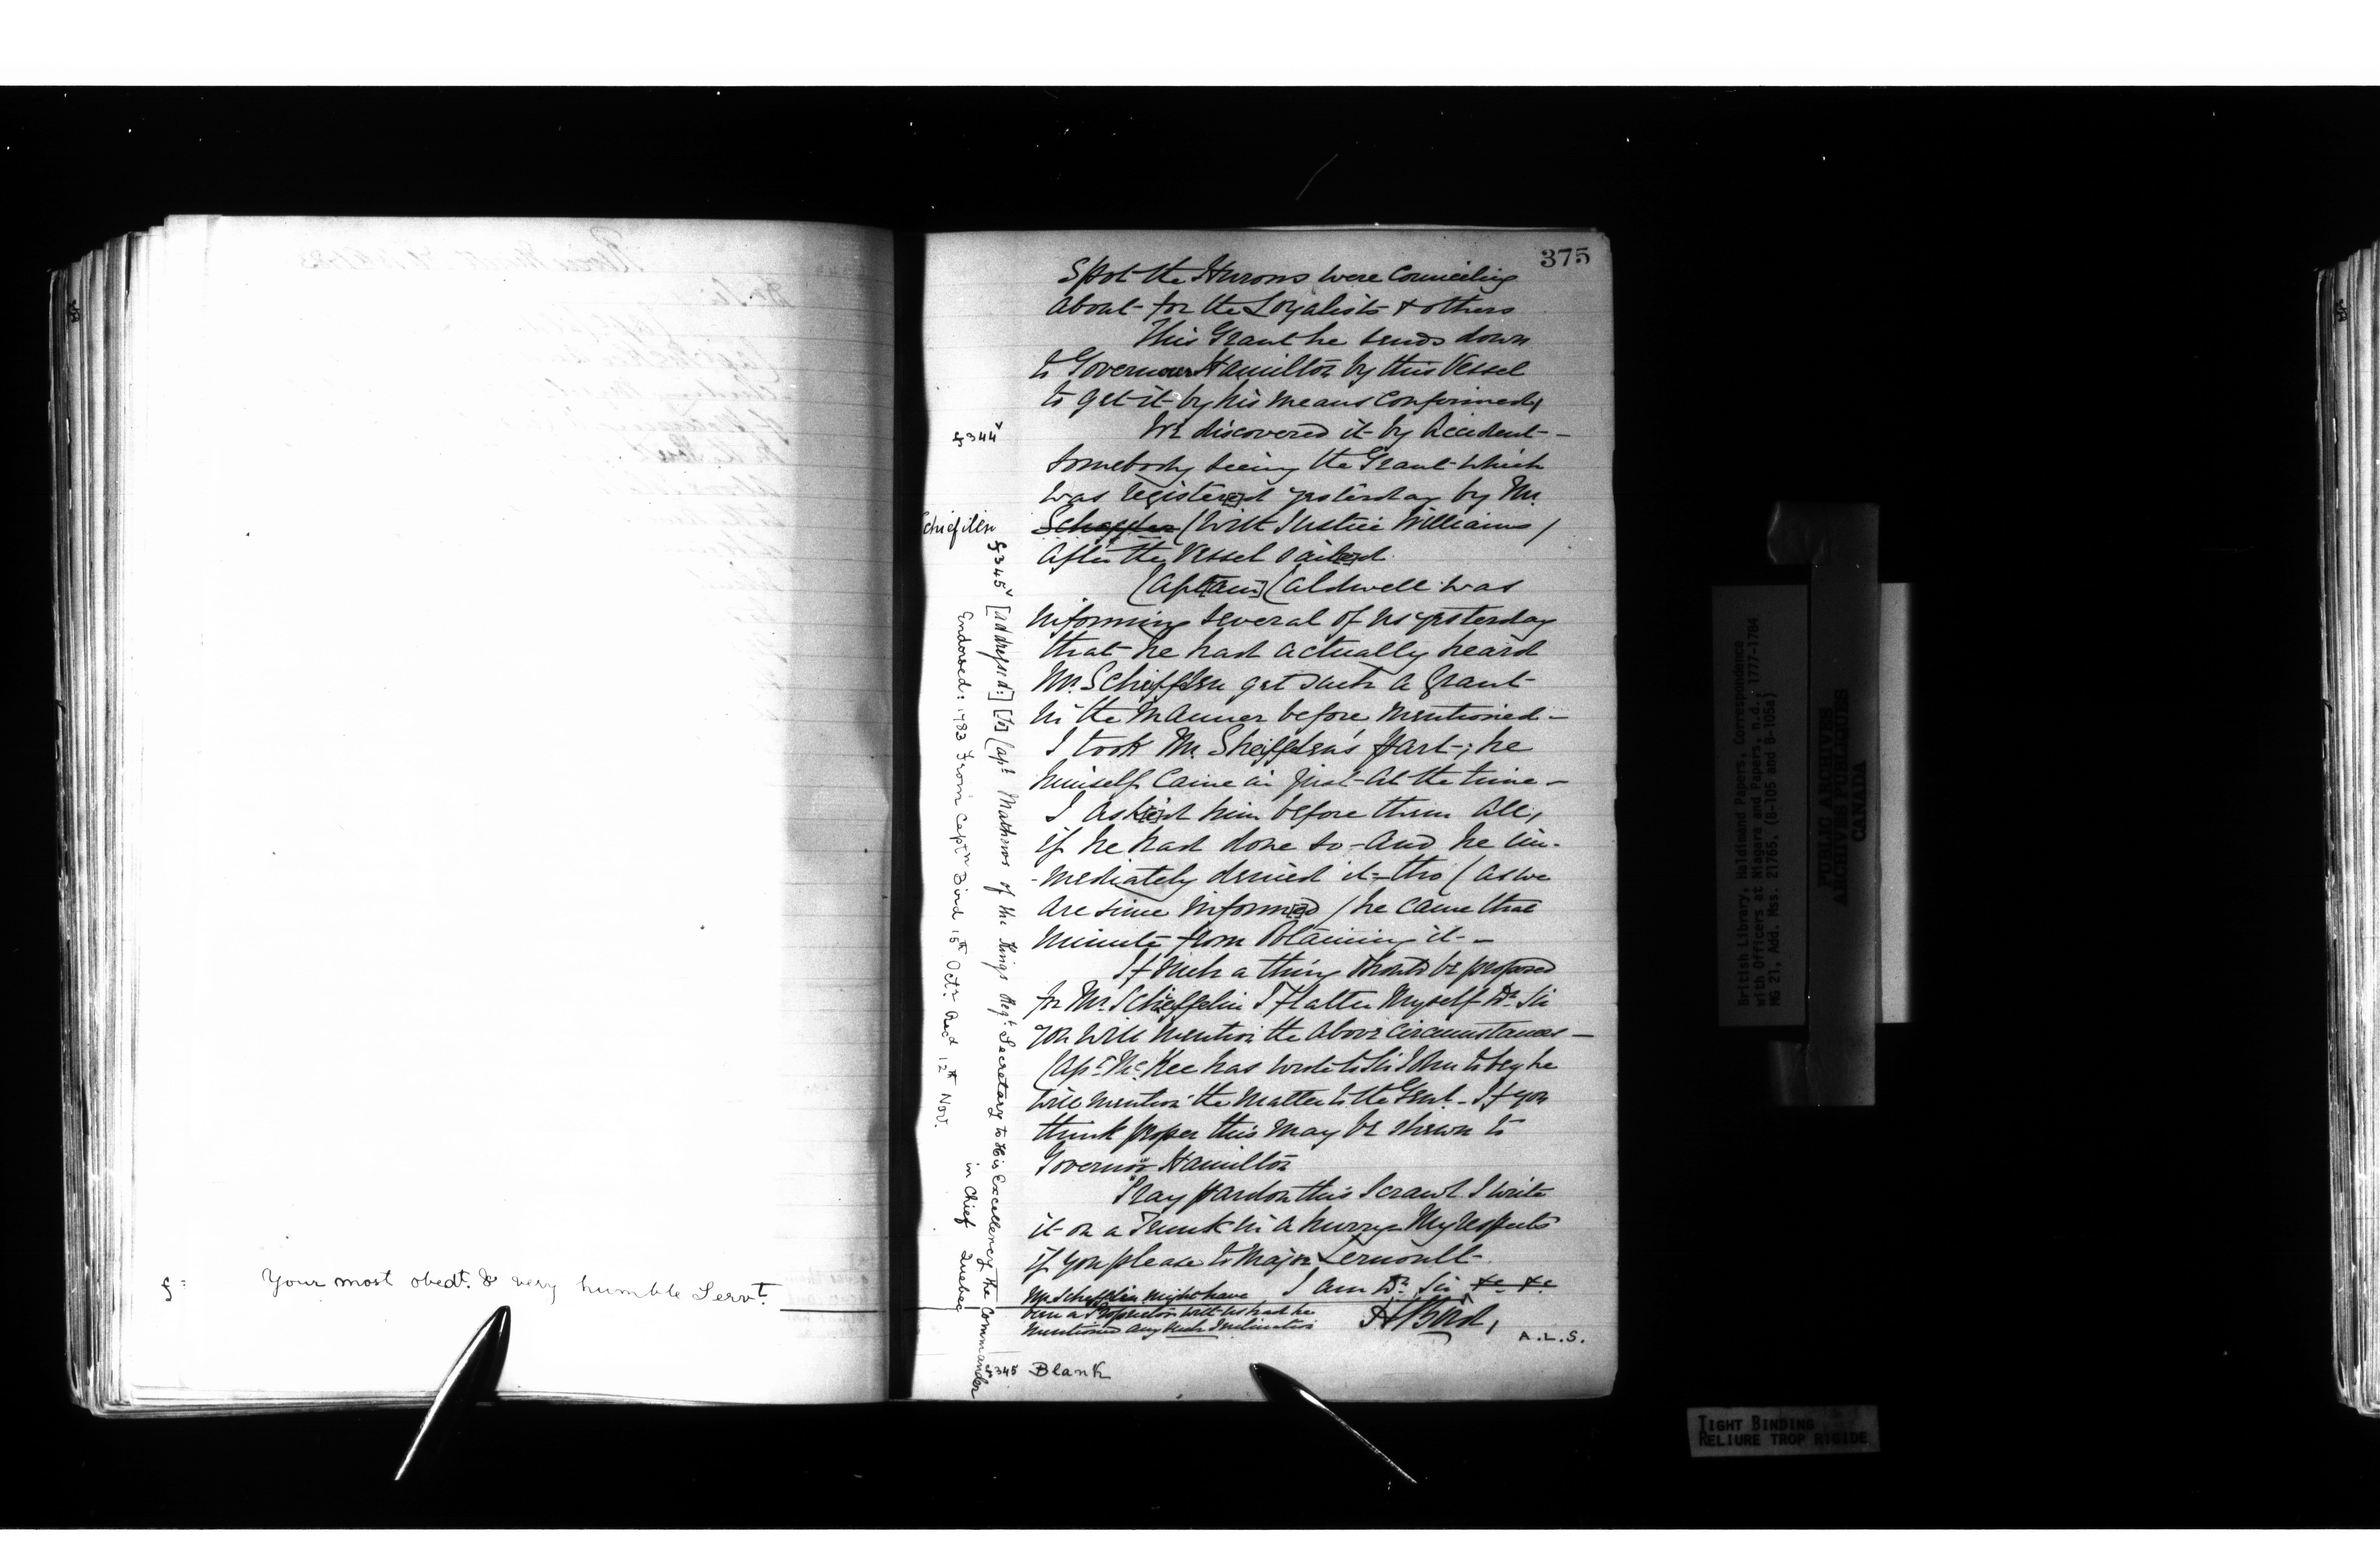 375
Spot the Hurons were Counciling
about for the Loyalists & others
This Grant he sends down
to Governour Hamilton by this Vessel
to get it by his means Confirmed,
f344v
We discovered it by Accident -
Somebody seeing the Grant which
was register[e]d yesterday by Mr.
Schiefilen
(With Justice Williams)
after the Vessel Sail[e]d.
Cap[tain] Caldwell was
informing several of us yesterday
that he had actually heard
Mr. Schiefflin get such a Grant
in the manner before mentioned -
I took Mr. Sheiffelen's part; he
himself came in just at the time -
I ask[e]d him before them all,
if he had done so - And he im-
-mediately denied it - tho (as we
are since inform[e]d) he came that
minute from Obtaining it -
If such a thing should be proposed
for Mr. Schieffelin I flatter myself Dr. Sir
you will mention the above circumstances -
Capt. McKee has wrote to Sir John to beg he
will mention the Matter to the Genl. - If you
think proper this may be shewn to
Governor Hamilton
Pray pardon this Scrawl I write
it on a Trunk in a hurry - My respects
if you please to Major Lernoult -
I am Dr. Sir &c &c
Your most obedt. & very humble Servt.
H Bird,
A.L.S.
Mr. Schefflin might have
been a Proprietor with us had he
mentioned any such Inclination
f345 Blank
f345v [addressed:] [To] Capt. Mathews of the Kings Regt. Secretary to His Excellency the Commander
in Chief Quebec
Endorsed: 1783 From Captn Bird 15th Octr. Recd 12th Nov.
British Library, Haldimand Papers, Correspondence
with Officers at Niagara and Papers, n.d., 1777-1784
MG 21, Add. Mss. 21765, (B-105 and B-105a)
PUBLIC ARCHIVES
ARCHIVES PUBLIQUES
CANADA
TIGHT BINDING
RELIURE TROP RIGIDE